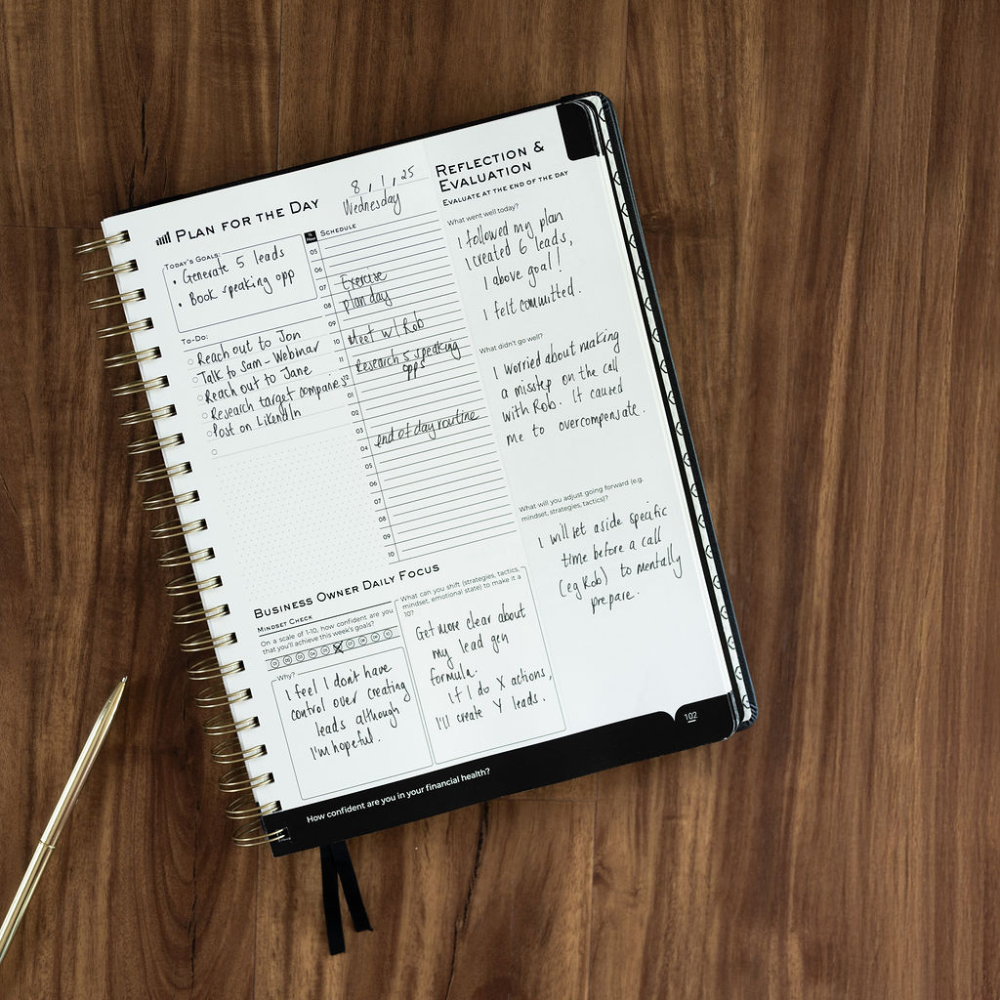 PLAN FOR THE DAY
8, 1, 25
Wednesday
TODAY'S GOALS:
• Generate 5 leads
• Book speaking opp
TO-DO:
Reach out to Jon
Talk to Sam - Webinar
Reach out to Jane
Research target companies
Post on LikendIn
SCHEDULE
05
06
07
08
09
10
11
12
01
02
03
04
05
06
07
08
09
10
Exercise
plan day
Meet w/ Rob
Research 5 speaking
opps
end of day routine
BUSINESS OWNER DAILY FOCUS
MINDSET CHECK
On a scale of 1-10, how confident are you
that you'll achieve this week's goals?
Why?
I feel I don't have
control over creating
leads although
I'm hopeful.
What can you shift (strategies, tactics,
mindset, emotional state) to make it a
10?
Get more clear about
my lead gen
formula.
If I do X actions,
I'll create Y leads.
REFLECTION &
EVALUATION
EVALUATE AT THE END OF THE DAY
What went well today?
I followed my plan
I created 6 leads,
1 above goal!
I felt committed.
What didn't go well?
I worried about making
a misstep on the call
with Rob. It caused
me to overcompensate.
What will you adjust going forward (e.g.
mindset, strategies, tactics)?
I will set aside specific
time before a call
(eg Rob) to mentally
prepare.
How confident are you in your financial health?
102